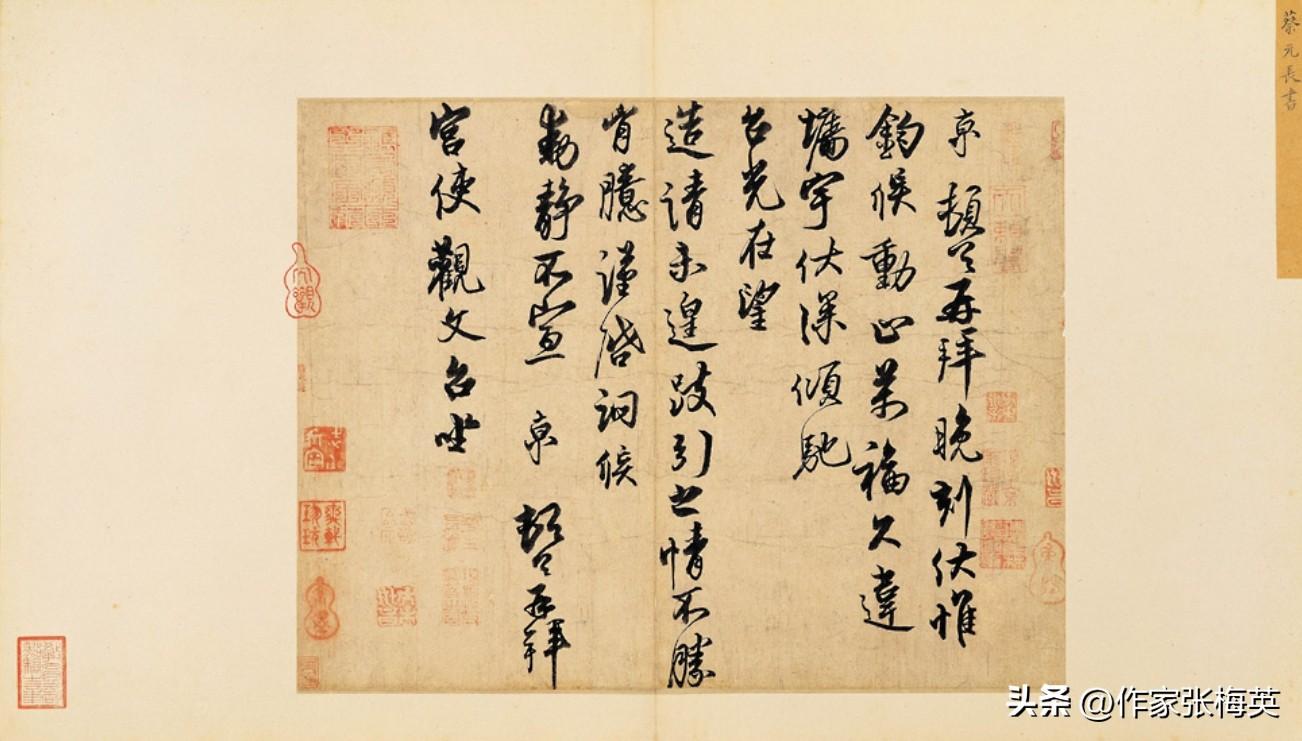 蔡元長書
京頓首再拜晚刻伏惟
鈞候動止萬福久違
墉宇伏深傾馳
台光在望
造請未遑跂引之情不勝
胷臆謹啓詞候
動靜不宣京頓首再拜
宮使觀文台坐
头条 @作家张梅英